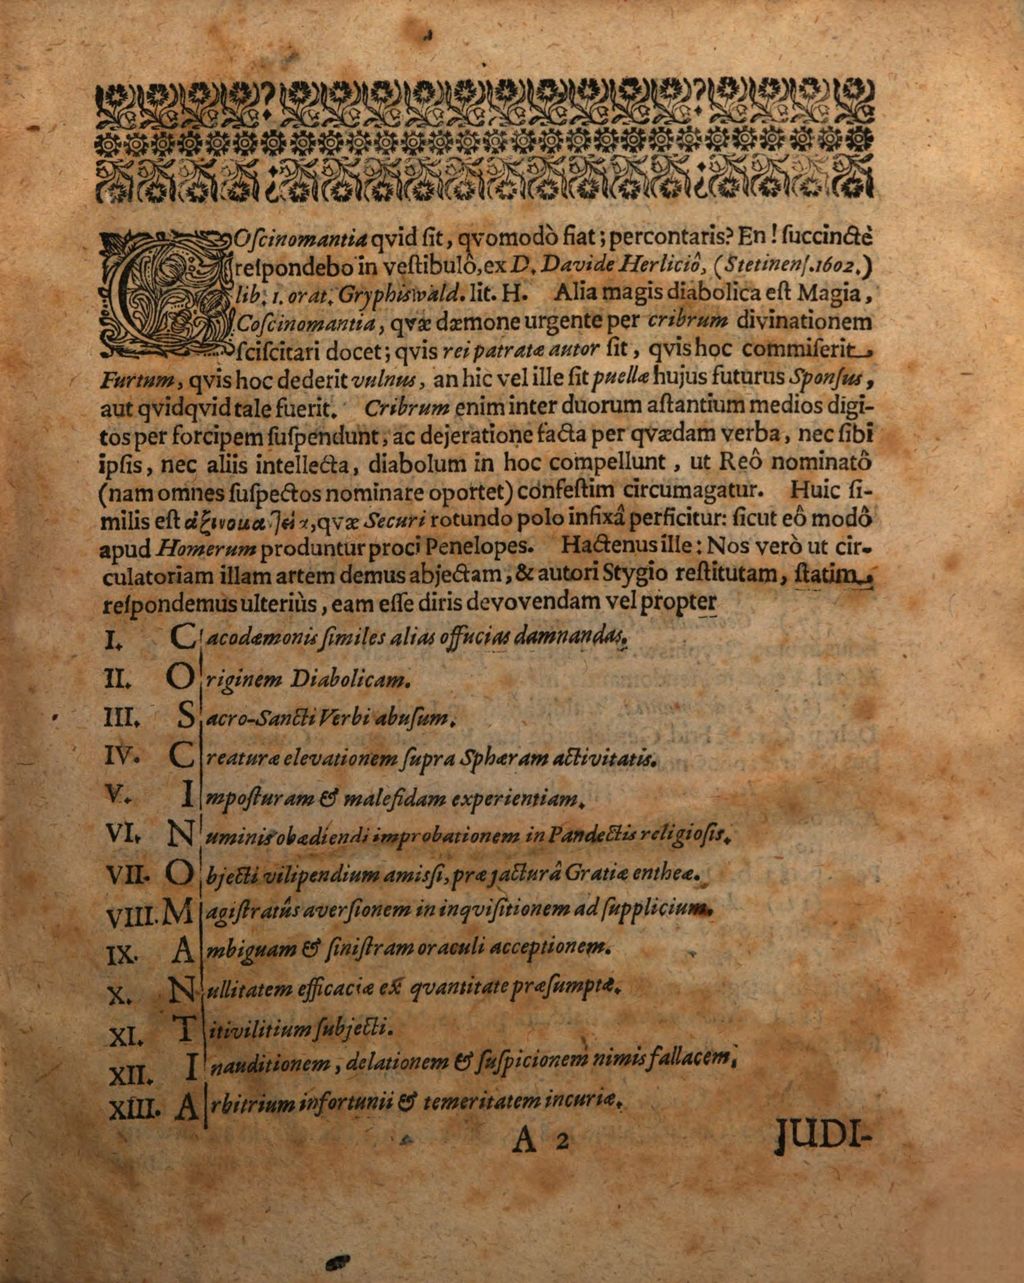 COſcinomantia qvid ſit, qvomodò fiat; percontaris? En! ſuccinctè
reſpondebo in veſtibulô, ex D. Davide Herliciô, (Stetinenſ. 1602.)
lib. 1. orat. Gryphiswald. lit. H. Alia magis diabolica eſt Magia,
Coſcinomantia, qvæ dæmone urgente per cribrum divinationem
ſciſcitari docet; qvis rei patratæ autor ſit, qvis hoc commiſerit
Furtum, qvis hoc dederit vulnus, an hic vel ille ſit puellæ hujus futurus Sponſus,
aut qvidqvid tale fuerit. Cribrum enim inter duorum aſtantium medios digi-
tos per forcipem ſuſpendunt, ac dejeratione facta per qvædam verba, nec ſibi
ipſis, nec aliis intellecta, diabolum in hoc compellunt, ut Reô nominatô
(nam omnes ſuſpectos nominare oportet) confeſtim circumagatur. Huic ſi-
milis eſt ἀξινομαντεία, qvæ Securi rotundo polo infixâ perficitur: ſicut eô modô
apud Homerum produntur proci Penelopes. Hactenus ille: Nos verò ut cir-
culatoriam illam artem demus abjectam, & autori Stygio reſtitutam, ſtatim
reſpondemus ulteriùs, eam eſſe diris devovendam vel propter
I. Cacodæmonis ſimiles alias offucias damnandas.
II. Originem Diabolicam.
III. Sacro-Sancti Verbi abuſum.
IV. Creaturæ elevationem ſupra Sphæram activitatis.
V. Impoſturam & malefidam experientiam.
VI. Numinis obædiendi improbationem in Pandectis religioſis.
VII. Objecti vilipendium amiſſi, præ jacturâ Gratiæ entheæ.
VIII. Magiſtratûs averſionem in inqviſitionem ad ſupplicium.
IX. Ambiguam & ſiniſtram oraculi acceptionem.
X. Nullitatem efficaciæ ex qvantitate præſumptæ.
XI. Titivilitium ſubjecti.
XII. Inauditionem, delationem & ſuſpicionem nimis fallacem,
XIII. Arbitrium infortunii & temeritatem incuriæ.
A 2 JUDI-